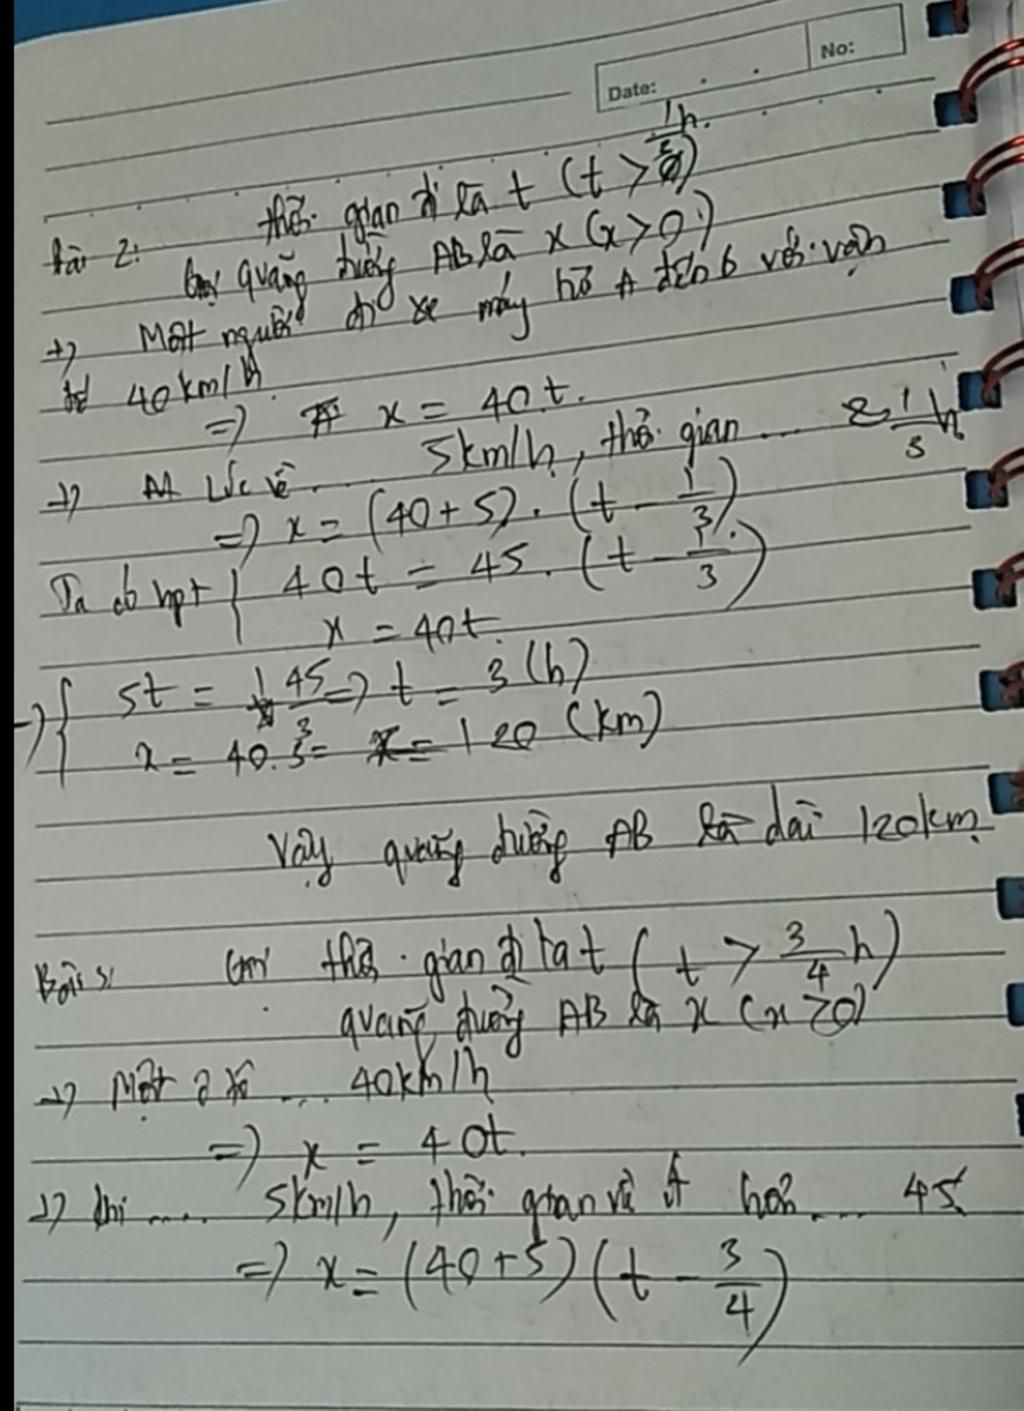 Date: No:
thời gian đi là t (t > 1/3 h)
Bài 2: Gọi quãng đường AB là x (x > 0)
+) Một người đi xe máy từ A đến B với vận
tđ 40km/h
=> x = 40t.
+) Lúc về ... 5km/h, thời gian ... 1/3 h
=> x = (40 + 5) . (t - 1/3)
Ta có hpt { 40t = 45 . (t - 1/3)
x = 40t
=> { 5t = 45/3 => t = 3 (h)
x = 40.3 = 120 (km)
Vậy quãng đường AB là dài 120km.
Bài 3: Gọi thời gian đi là t (t > 3/4 h)
quãng đường AB là x (x > 0)
+) Một ô tô ... 40km/h
=> x = 40t.
+) khi .... 5km/h, thời gian về A hơn ... 45
=> x = (40 + 5) (t - 3/4)